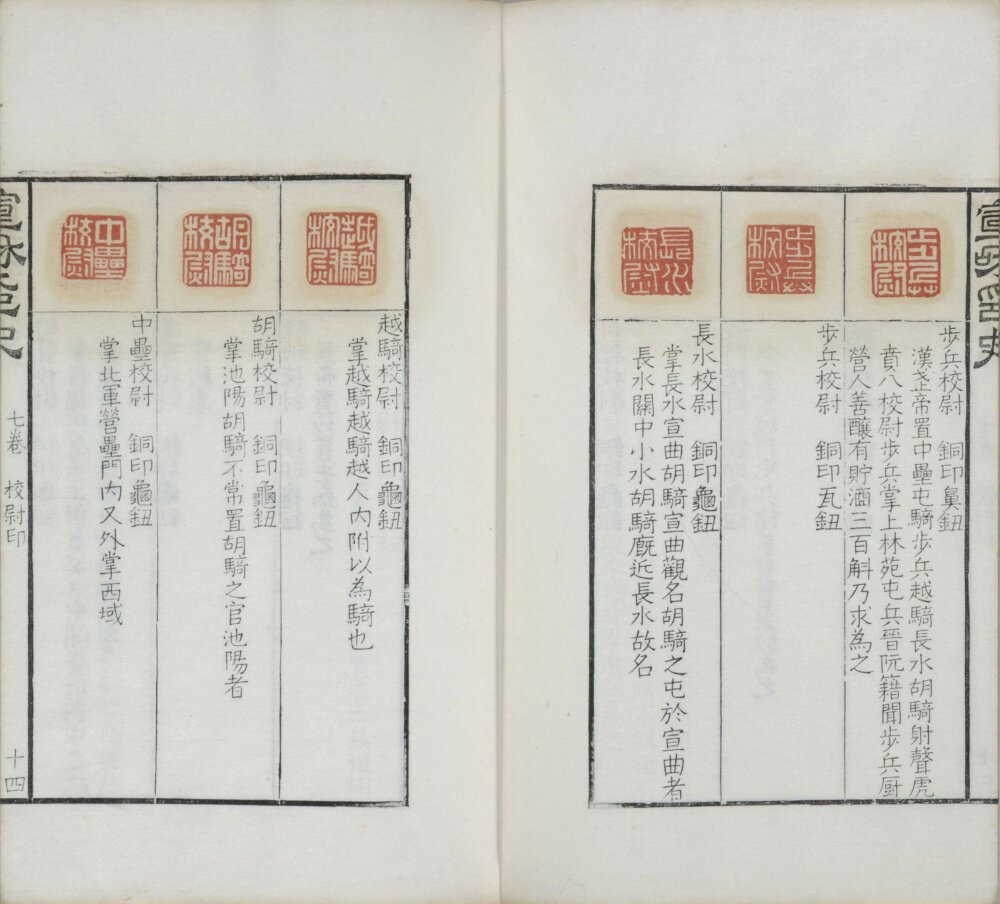 宣和印史
步兵
校尉
步兵校尉 銅印鼻鈕
漢武帝置中壘屯騎步兵越騎長水胡騎射聲虎
賁八校尉步兵掌上林苑屯兵晉阮籍聞步兵厨
營人善釀有貯酒三百斛乃求為之
步兵
校尉
步兵校尉 銅印瓦鈕
長水
校尉
長水校尉 銅印龜鈕
掌長水宣曲胡騎宣曲觀名胡騎之屯於宣曲者
長水關中小水胡騎廐近長水故名
越騎
校尉
越騎校尉 銅印龜鈕
掌越騎越騎越人內附以為騎也
胡騎
校尉
胡騎校尉 銅印龜鈕
掌池陽胡騎不常置胡騎之官池陽者
中壘
校尉
中壘校尉 銅印龜鈕
掌北軍營壘門內又外掌西域
宣和印史
七卷 校尉印 十四